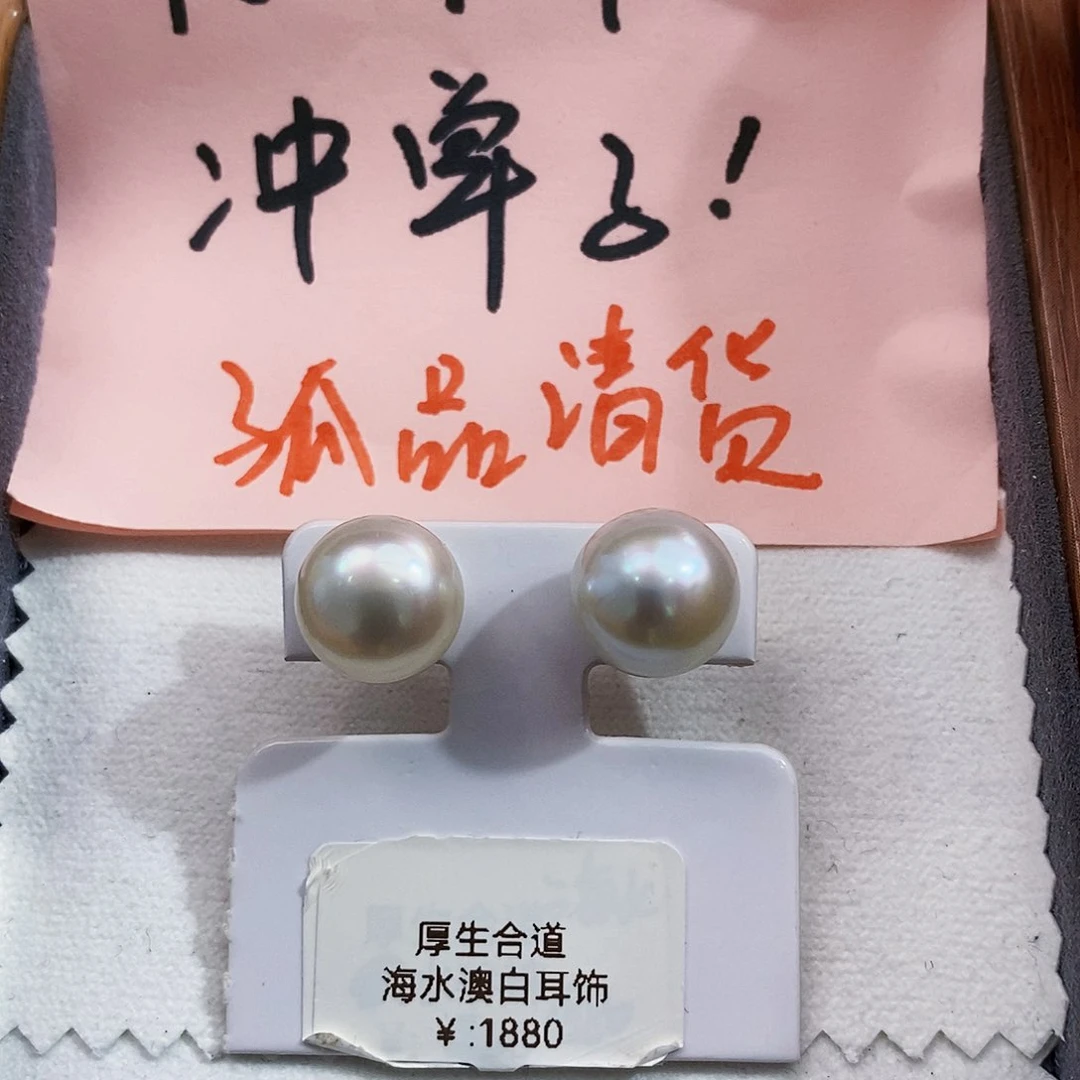 冲单子!
孤品清货
厚生合道
海水澳白耳饰
¥:1880